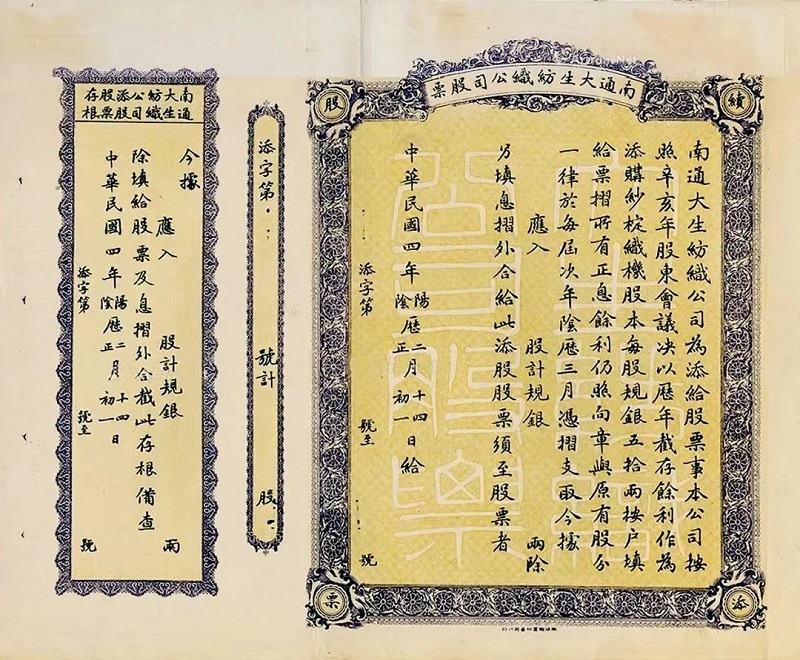 南通大生紡織公司股票
續
股
添
票
南通大生紡織公司為添給股票事本公司按
照辛亥年股東會議決以歷年截存餘利作為
添購紗椗織機股本每股規銀五拾兩按户填
給票摺所有正息餘利仍照向章與原有股分
一律於每屆次年陰歷三月憑摺支取今據
應入 股計規銀 兩除
另填息摺外合給此添股股票須至股票者
中華民國四年陽陰歷二正月十四初一日給
添字第 號至 號
添字第 號計 股
南通大生紡織公司添股股票存根
今據
應入 股計規銀 兩
除填給股票及息摺外合截此存根備查
中華民國四年陽陰歷二正月十四初一日
添字第 號至 號